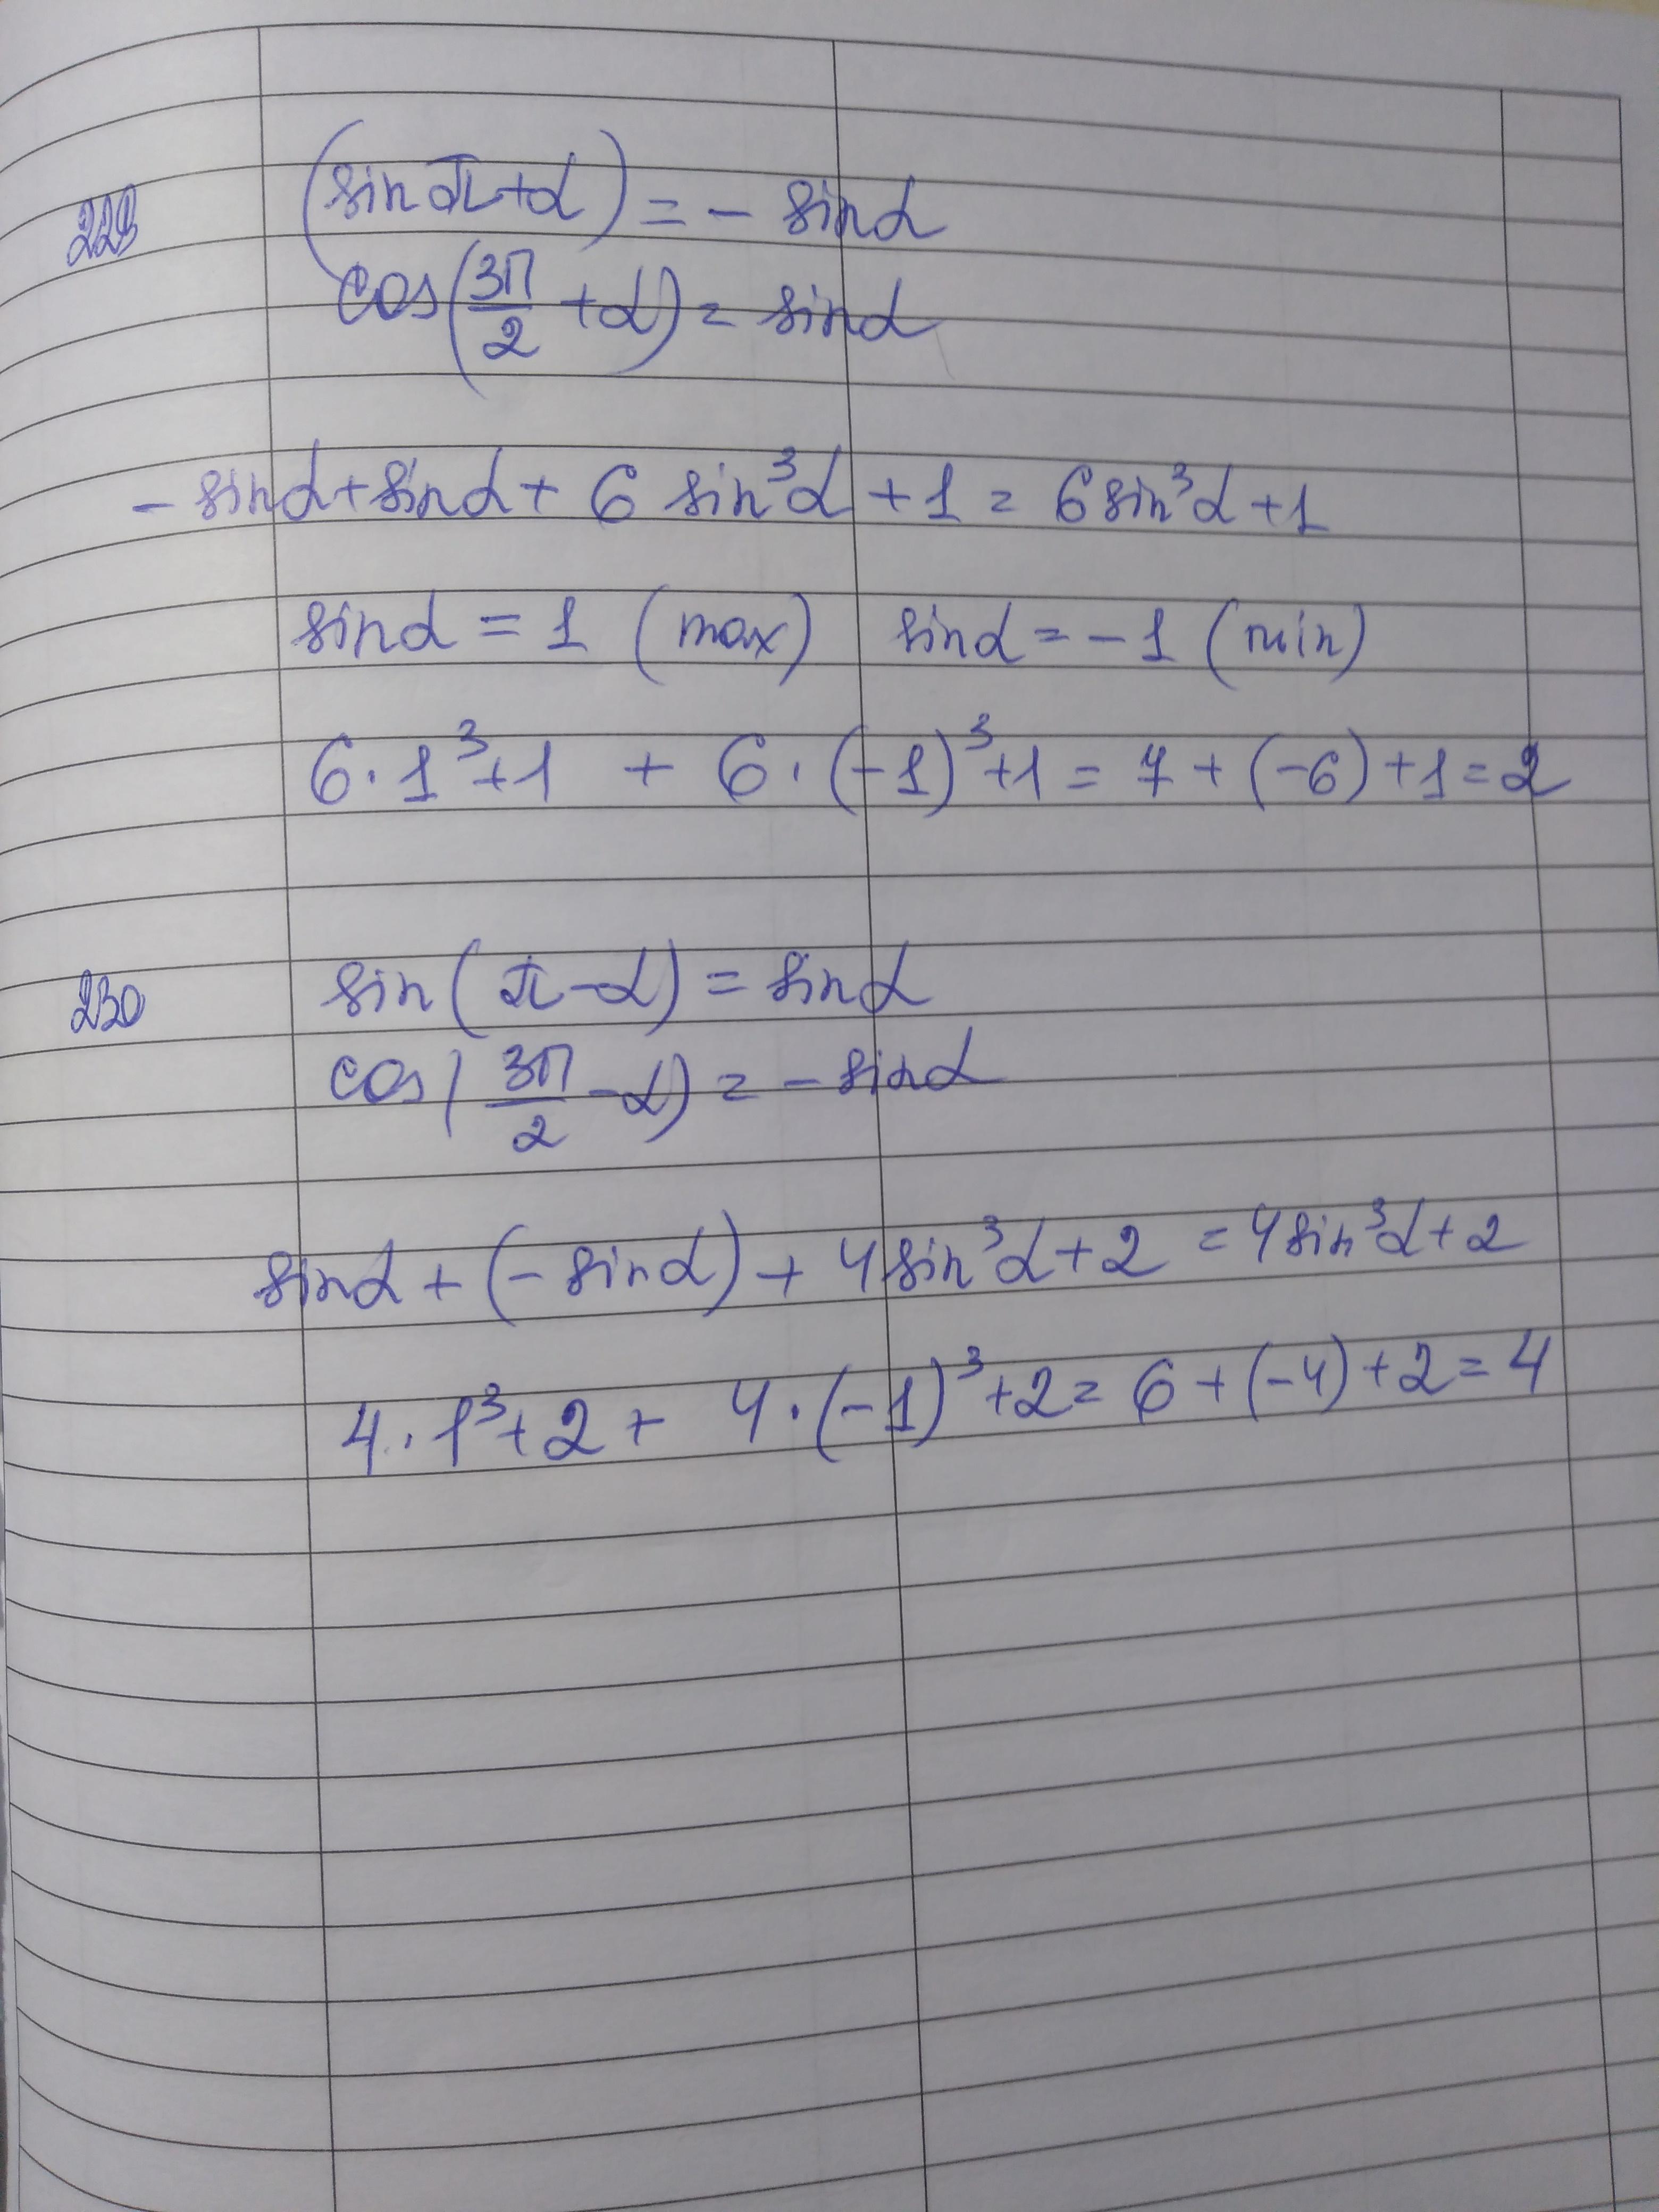 229 (sin π+α) = - sinα
cos(3π/2 + α) = sinα
- sinα + sinα + 6 sin³α + 1 = 6sin³α + 1
sinα = 1 (max) sinα = -1 (min)
6·1³+1 + 6·(-1)³+1 = 7 + (-6) + 1 = 2
230 sin(π-α) = sinα
cos(3π/2 - α) = - sinα
sinα + (- sinα) + 4sin³α + 2 = 4sin³α + 2
4·1³+2 + 4·(-1)³+2 = 6 + (-4) + 2 = 4